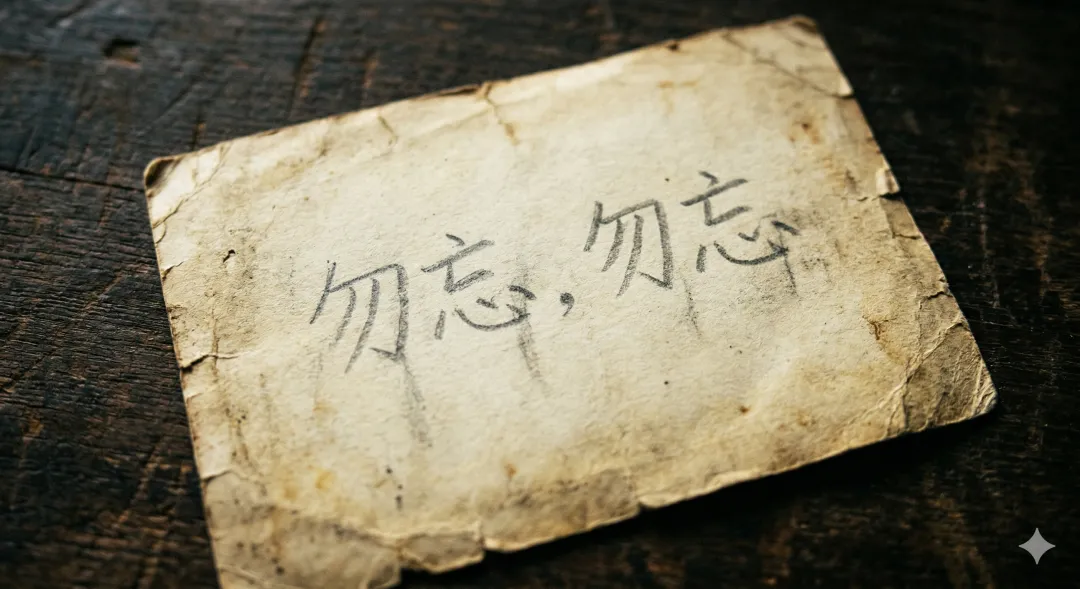 勿忘，勿忘